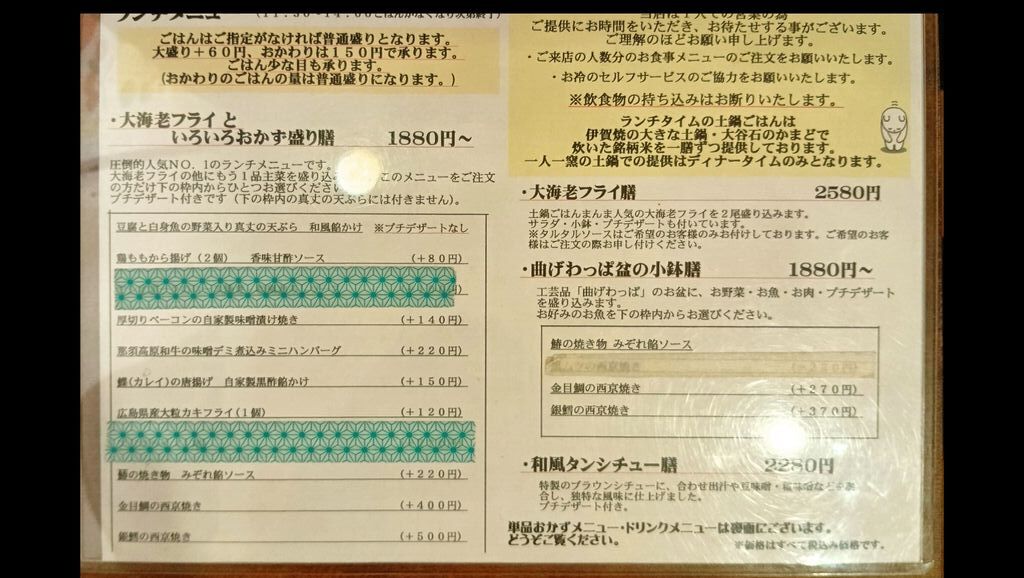 ランチメニュー (11:30-14:00ごはんがなくなり次第終了)
ごはんはご指定がなければ普通盛りとなります。
大盛り＋６０円、おかわりは１５０円で承ります。
ごはん少な目も承ります。
(おかわりのごはんの量は普通盛りになります。)
・大海老フライ と
いろいろおかず盛り膳 1880円～
圧倒的人気ＮＯ．1のランチメニューです。
大海老フライの他にもう１品主菜を盛り込み このメニューをご注文
の方だけ下の枠内からひとつお選びください
プチデザート付きです（下の枠内の真丈の天ぷらには付きません）。
豆腐と白身魚の野菜入り真丈の天ぷら 和風餡かけ ※プチデザートなし
鶏ももから揚げ（２個） 香味甘酢ソース (＋80円)
厚切りベーコンの自家製味噌漬け焼き (＋140円)
那須高原和牛の味噌デミ煮込みミニハンバーグ (＋220円)
鰈(カレイ)の唐揚げ 自家製黒酢餡かけ (＋150円)
広島県産大粒カキフライ(1個) (＋120円)
鰆の焼き物 みぞれ餡ソース (＋220円)
金目鯛の西京焼き (＋400円)
銀鱈の西京焼き (＋500円)
当店は１人での営業の為
ご提供にお時間をいただき、お待たせする事がございます。
ご理解のほどお願い申し上げます。
・ご来店の人数分のお食事メニューのご注文をお願いいたします。
・お冷のセルフサービスのご協力をお願いいたします。
※飲食物の持ち込みはお断りいたします。
ランチタイムの土鍋ごはんは
伊賀焼の大きな土鍋・大谷石のかまどで
炊いた銘柄米を一膳ずつ提供しております。
一人一窯の土鍋での提供はディナータイムのみとなります。
・大海老フライ膳 2580円
土鍋ごはんまんま人気の大海老フライを２尾盛り込みます。
サラダ・小鉢・プチデザートも付いています。
※タルタルソースはご希望のお客様のみお付けしております。ご希望のお客
様はご注文の際お申し付けください。
・曲げわっぱ盆の小鉢膳 1880円～
工芸品「曲げわっぱ」のお盆に、お野菜・お魚・お肉・プチデザート
を盛り込みます。
お好みのお魚を下の枠内からお選びください。
鰆の焼き物 みぞれ餡ソース
の西京焼き
金目鯛の西京焼き (＋270円)
銀鱈の西京焼き (＋370円)
・和風タンシチュー膳 2280円
特製のブラウンシチューに、合わせ出汁や豆味噌・ などを
合し、独特な風味に仕上げました。
プチデザート付き。
単品おかずメニュー・ドリンクメニューは裏面にございます。
どうぞご覧ください。 ※価格はすべて税込み価格です。